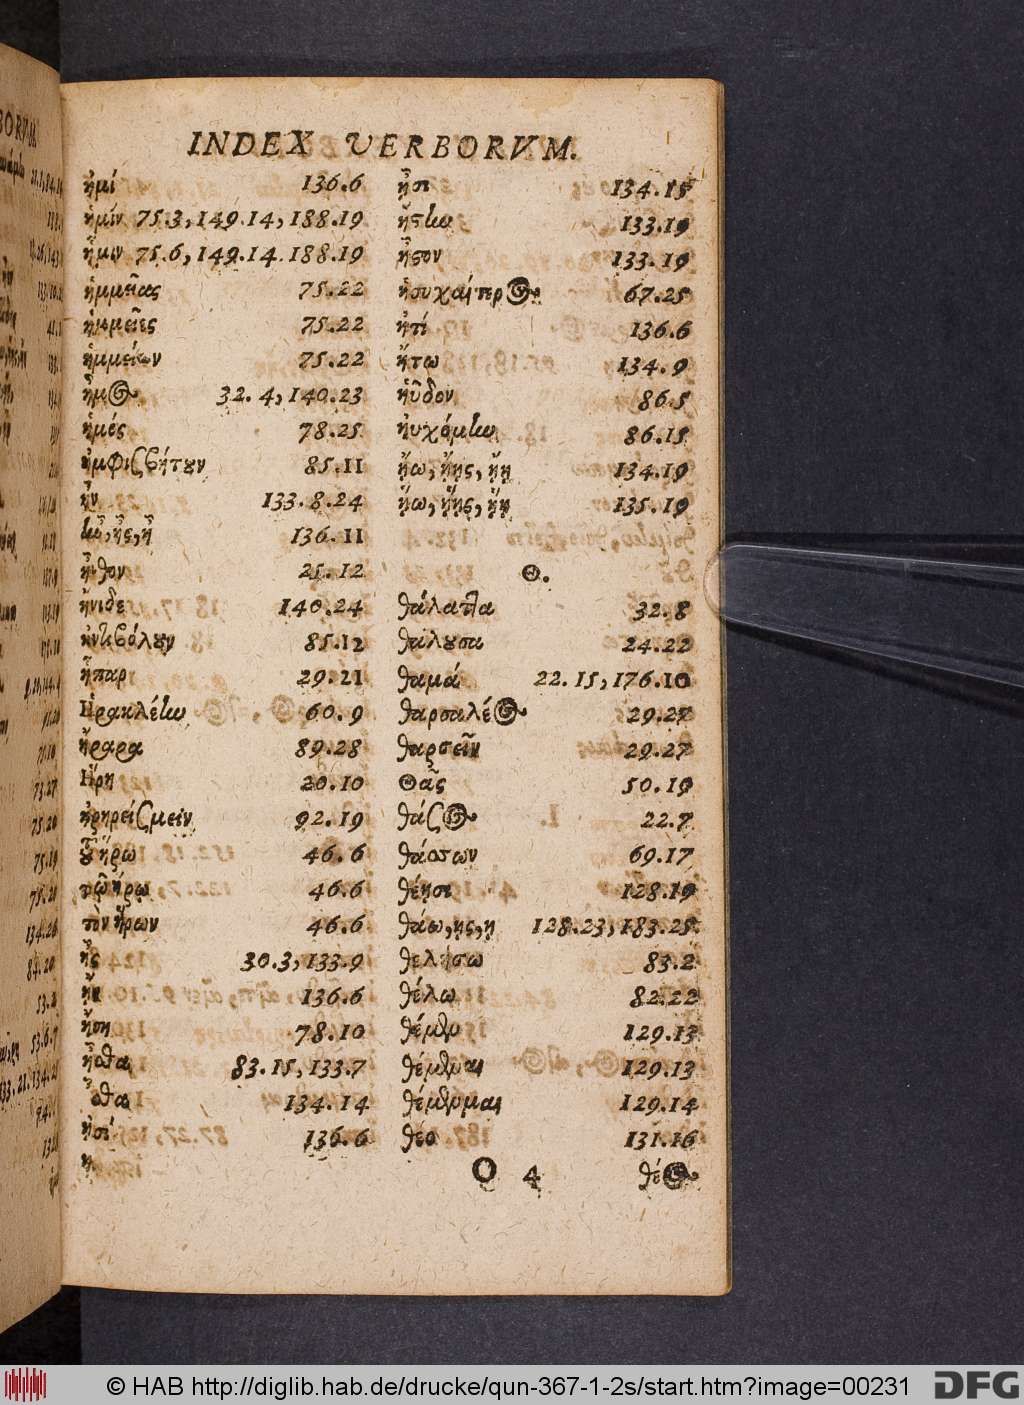 INDEX VERBORVM.
ἠμί 136.6
ἡμίν 75.3, 149.14, 188.19
ἧμιν 75.6, 149.14. 188.19
ἡμμείας 75.22
ἡμμεῖες 75.22
ἡμμείων 75.22
ἦμος 32.4, 140.23
ἠμές 78.25
ἠμφισβήτουν 85.11
ἦν 133.8.24
ὦ, ἦς, ἦ 136.11
ἦνθον 25.12
ἠνίδε 140.24
ἠντιβόλουν 85.12
ἧπαρ 29.21
Ἡρακλέην 60.9
ἤραρα 89.28
Ἥρη 20.10
ἠρηρείσμειν 92.19
τοῦ ἥρω 46.6
τῷ ἥρῳ 46.6
τὸν ἥρων 46.6
ἦς 30.3, 133.9
136.6
ἤση 78.10
ἦσθα 83.15, 133.7
ἦσθα 134.14
ἠσί 136.6
ἦσι 134.15
ἤστην 133.19
ἦστον 133.19
ἡσυχαίτερος 67.25
ἠτί 136.6
ἤτω 134.9
ηὗδον 86.5
ηὐχόμην 86.15
ᾔω, ᾔης, ᾔη 134.19
ᾕω, ᾕης, ᾕη 135.19
Θ.
θάλαττα 32.8
θάλουσα 24.22
θαμά 22.15, 176.10
θαρσαλέος 29.27
θαρσεῖν 29.27
Θᾶς 50.19
θάσσος 22.7
θάσσων 69.17
θέησι 128.19
θέω, ης, η 128.23, 183.25
θελήσω 83.2
θέλω 82.22
θέμεν 129.13
θέμεναι 129.13
θέμμεναι 129.14
θέο 131.16
O 4 θέος
© HAB http://diglib.hab.de/drucke/qun-367-1-2s/start.htm?image=00231
DFG